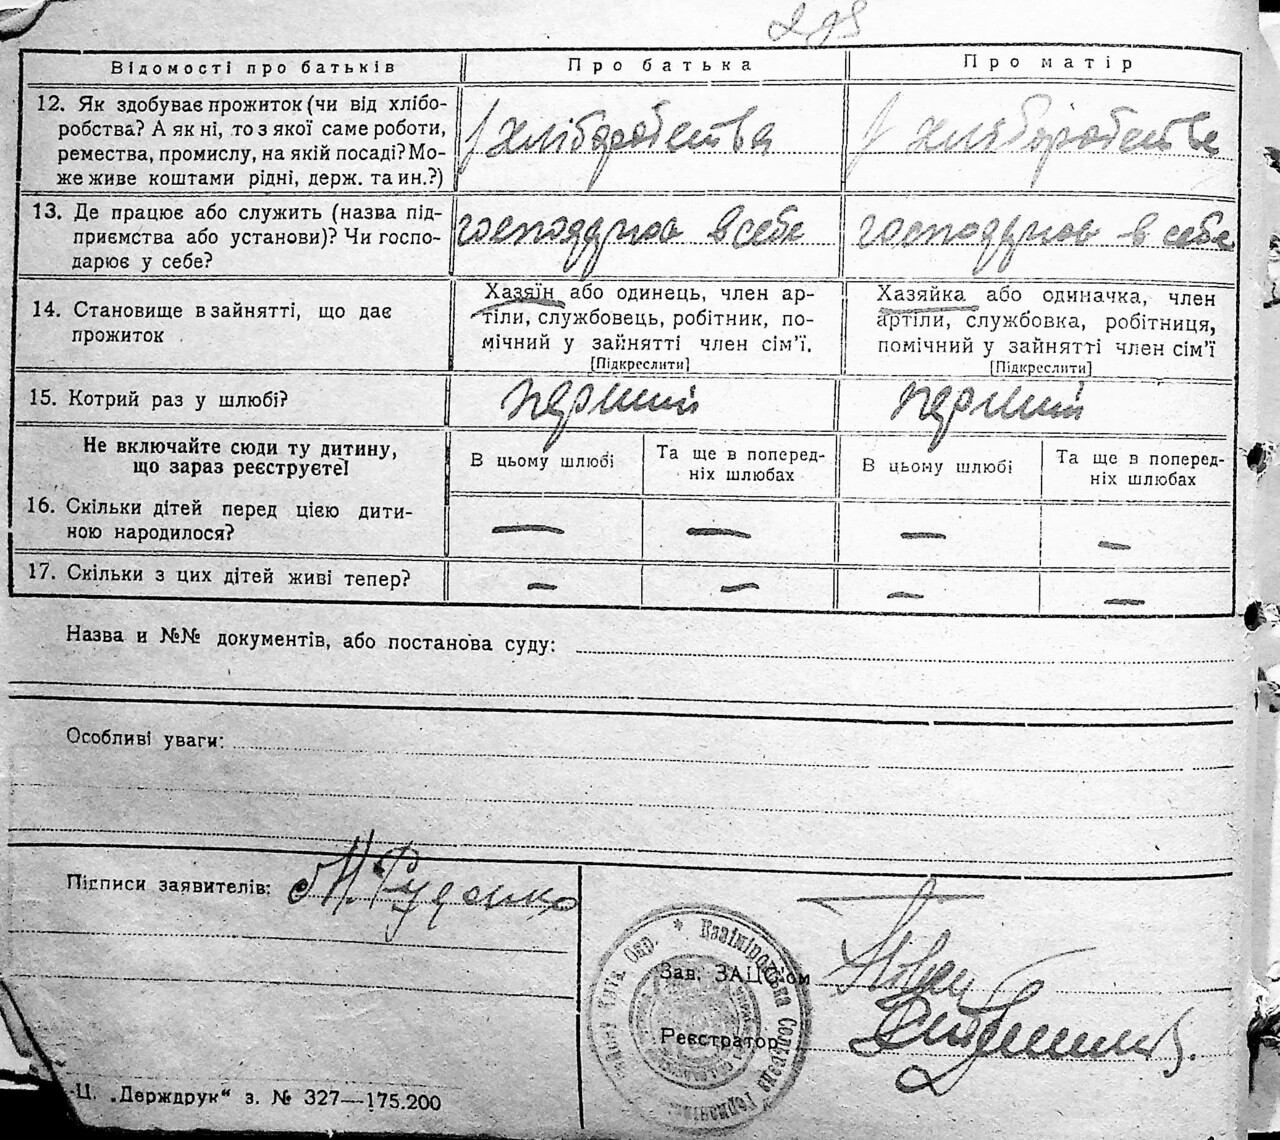 Відомості про батьків Про батька Про матір
12. Як здобуває прожиток (чи від хлібо-
робства? А як ні, то з якої саме роботи,
ремества, промислу, на якій посаді? Мо-
же живе коштами рідні, держ. та ин.?)
хліборобства хліборобства
13. Де працює або служить (назва під-
приємства або установи)? Чи госпо-
дарює у себе?
господарює в себе господарює в себе
14. Становище в зайнятті, що дає
прожиток
Хазяїн або одинець, член ар-
тіли, службовець, робітник, по-
мічний у зайнятті член сім’ї.
[Підкреслити]
Хазяйка або одиначка, член
артіли, службовка, робітниця,
помічний у зайнятті член сім’ї
[Підкреслити]
15. Котрий раз у шлюбі? перший перший
Не включайте сюди ту дитину,
що зараз реєструєте!
В цьому шлюбі
Та ще в поперед-
ніх шлюбах
В цьому шлюбі
Та ще в поперед-
ніх шлюбах
16. Скільки дітей перед цією дити-
ною народилося?
— — — —
17. Скільки з цих дітей живі тепер?
— — — —
Назва и №№ документів, або постанова суду:
Особливі уваги:
Підписи заявителів: М. Руденко
Зав. ЗАЦС'ом
Реєстратор
Ц. „Держдрук“ з. № 327—175.200